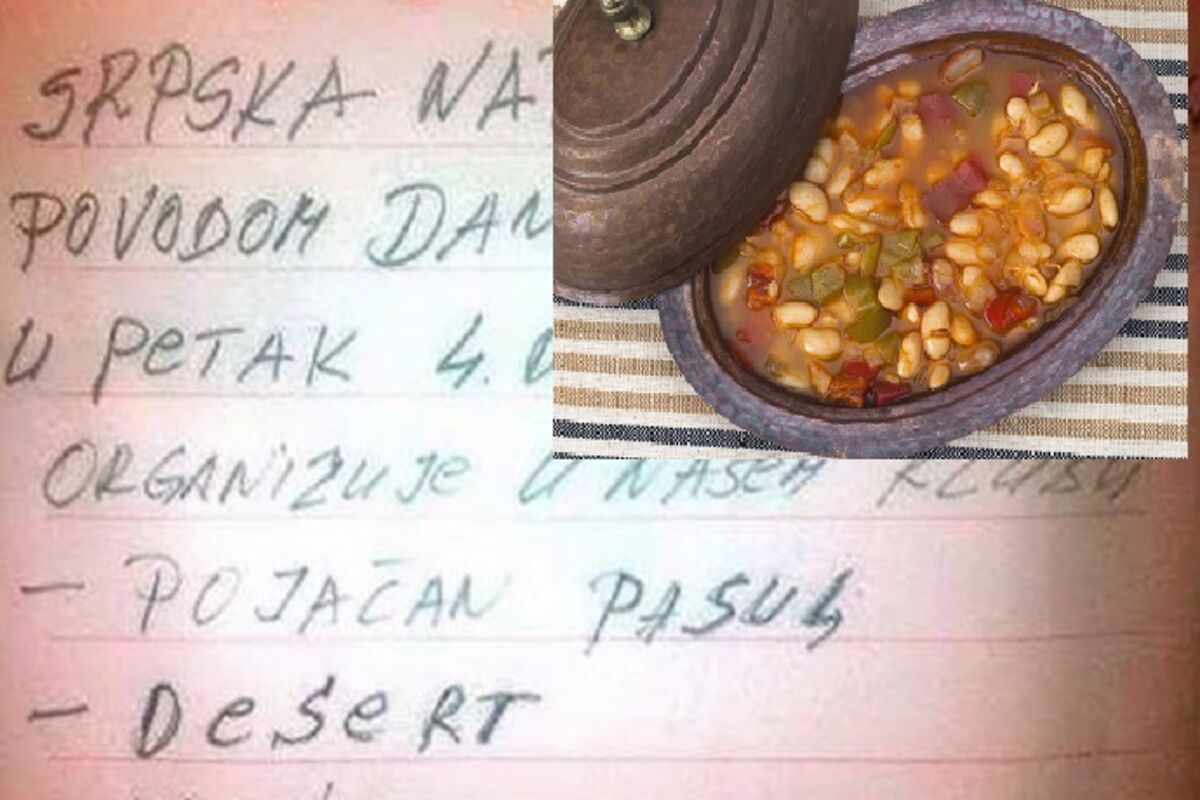 SRPSKA NA
POVODOM DAN
U PETAK 4.0
ORGANIZUJE U NAŠEM KLUBU
- POJAČAN PASULJ
- DESERT